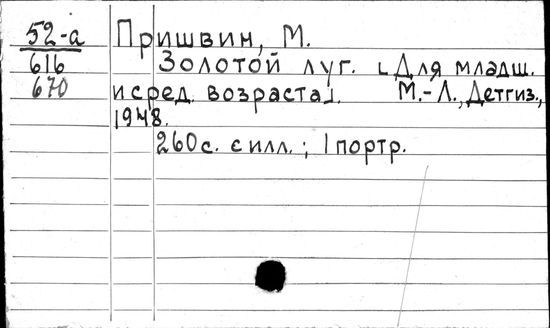 52-а Пришвин, М.
616 Золотой луг. [Для младш.
670 и сред. возраста]. М.-Л., Детгиз.,
1948.
260 с. с илл.; 1 портр.